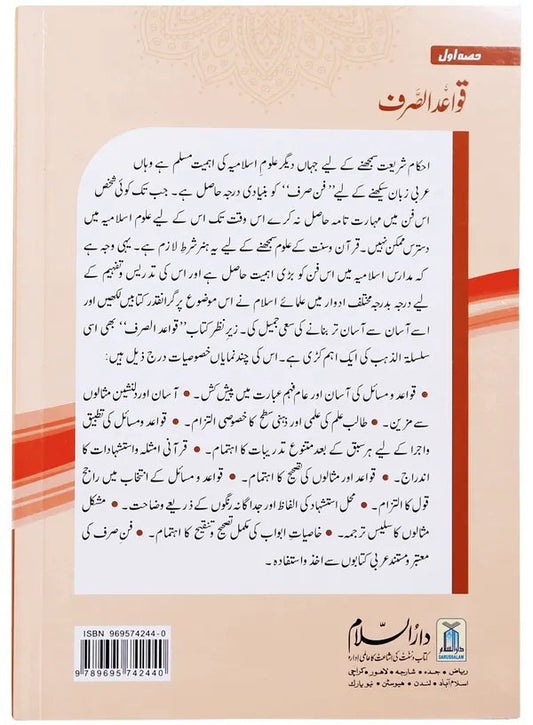 حصہ اول
قواعد الصرف
احکام شریعت سمجھنے کے لیے جہاں دیگر علوم اسلامیہ کی اہمیت مسلم ہے وہاں
عربی زبان سیکھنے کے لیے ”فن صرف“ کو بنیادی درجہ حاصل ہے۔ جب تک کوئی شخص
اس فن میں مہارت تامہ حاصل نہ کرے اس وقت تک اس کے لیے علوم اسلامیہ میں
دسترس ممکن نہیں۔ قرآن وسنت کے علوم سمجھنے کے لیے یہ ہنر شرط لازم ہے۔ یہی وجہ ہے
کہ مدارس اسلامیہ میں اس فن کو بڑی اہمیت حاصل ہے اور اس کی تدریس و تفہیم کے
لیے درجہ بدرجہ مختلف ادوار میں علمائے اسلام نے اس موضوع پر گرانقدر کتابیں لکھیں اور
اسے آسان سے آسان تر بنانے کی سعی جمیل کی۔ زیر نظر کتاب ”قواعد الصرف“ بھی اسی
سلسلۃ الذہب کی ایک اہم کڑی ہے۔ اس کی چند نمایاں خصوصیات درج ذیل ہیں:
• قواعد و مسائل کی آسان اور عام فہم عبارت میں پیش کش۔ • آسان اور دلنشین مثالوں
سے مزین۔ • طالب علم کی علمی اور ذہنی سطح کا خصوصی التزام۔ • قواعد و مسائل کی تطبیق
واجرا کے لیے ہر سبق کے بعد متنوع تدریبات کا اہتمام۔ • قرآنی امثلہ واستشہادات کا
اندراج۔ • قواعد اور مثالوں کی تصحیح کا اہتمام۔ • قواعد و مسائل کے انتخاب میں راجح
قول کا التزام۔ • محل استشہاد کی الفاظ اور جداگانہ رنگوں کے ذریعے وضاحت۔ • مشکل
مثالوں کا سلیس ترجمہ۔ • خاصیات ابواب کی مکمل تصحیح و تنقیح کا اہتمام۔ • فن صرف کی
معتبر و مستند عربی کتابوں سے اخذ و استفادہ۔
ISBN 969574244-0
9 789695 742440
دارالسلام
کتاب و سنت کی اشاعت کا عالمی ادارہ
ریاض • جدہ • شارجہ • لاہور • کراچی
اسلام آباد • لندن • ہیوسٹن • نیو یارک
دارالسلام
DARUSSALAM